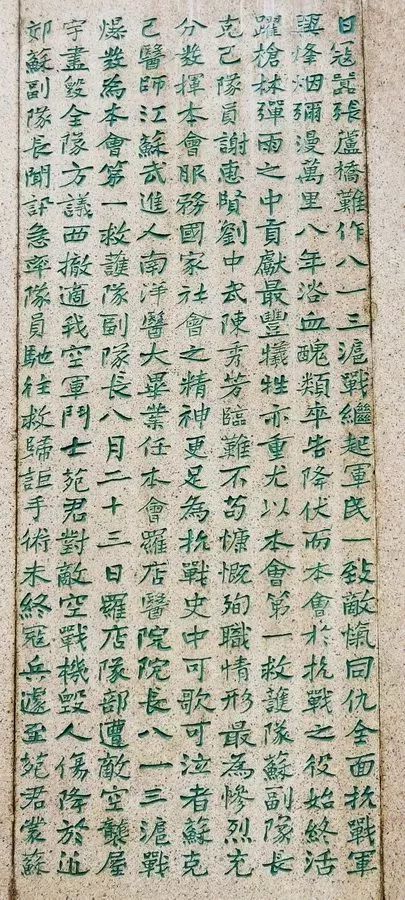 日寇囂張蘆橋難作八一三滬戰繼起軍民一致敵愾同仇全面抗戰軍
興烽烟彌漫萬里八年浴血醜類卒告降伏而本會於抗戰之役始終活
躍槍林彈雨之中貢獻最豐犧牲亦重尤以本會第一救護隊蘇副隊長
克己隊員謝惠賢劉中武陳秀芳臨難不苟慷慨殉職情形最為慘烈充
分發揮本會服務國家社會之精神更足為抗戰史中可歌可泣者蘇克
己醫師江蘇武進人南洋醫大畢業任本會羅店醫院院長八一三滬戰
爆發為本會第一救護隊副隊長八月二十三日羅店隊部遭敵空襲屋
宇盡毀全隊方議西撤適我空軍鬥士苑君對敵空戰機毀人傷降於近
郊蘇副隊長聞訊急率隊員馳往救歸詎手術未終寇兵遽至苑君蒙蘇